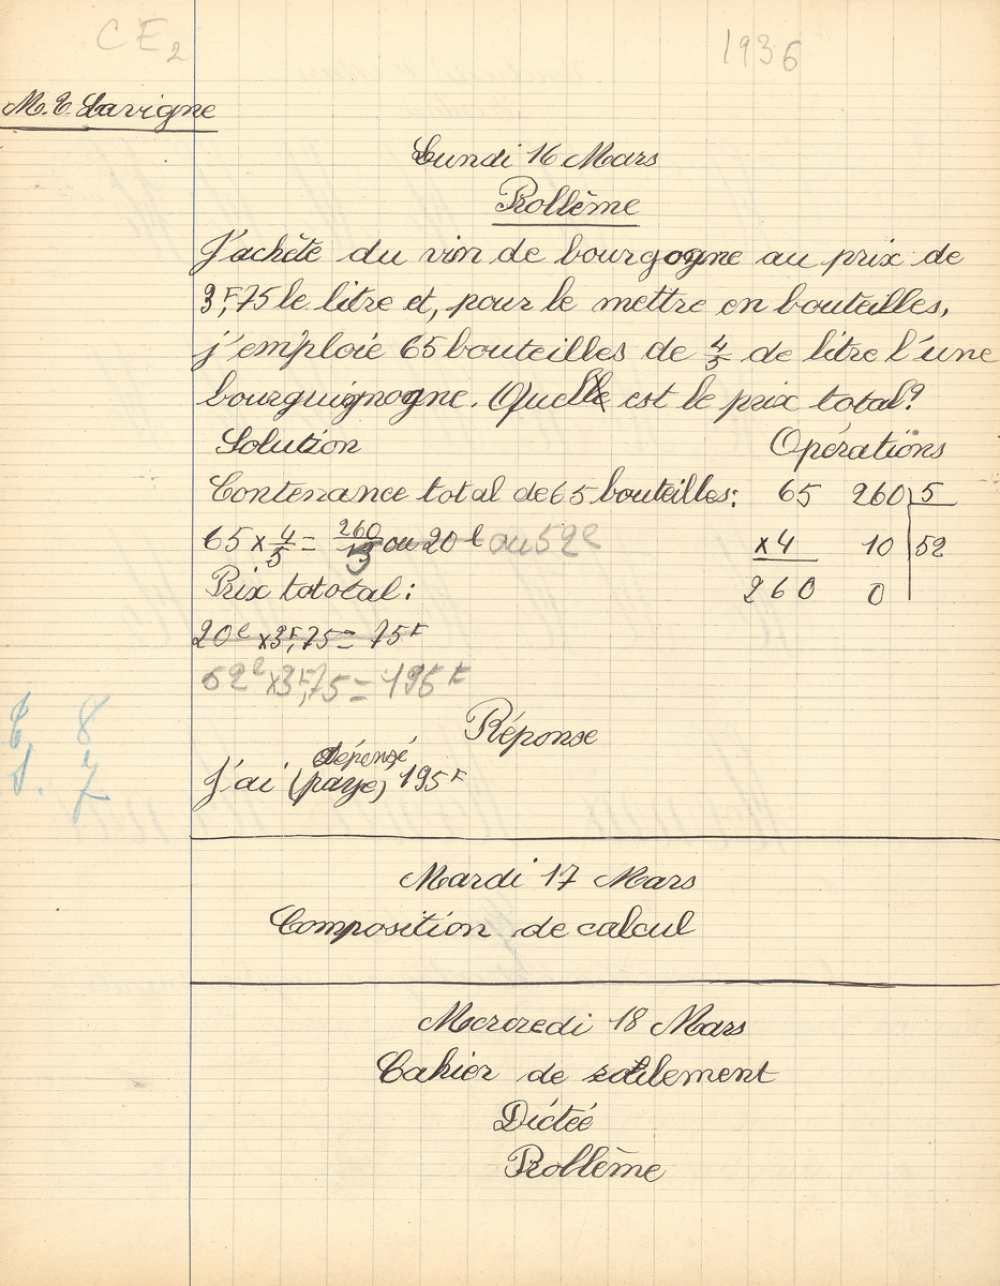 CE2
1936
M. E. Lavigne
Lundi 16 Mars
Problème
J'achète du vin de bourgogne au prix de
3F,75 le litre et, pour le mettre en bouteilles,
j'emploie 65 bouteilles de 4/5 de litre l'une
bourguignogne. Quelle est le prix total?
Solution Opérations
Contenance total de 65 bouteilles: 65 260 5
65 x 4/5 = 260/5 ou 20 l ou 52 l x4 10 52
Prix totoal: 260 0
20 l x 3F,75 = 75F
52 l x 3F,75 = 195F
Réponse
dépensé
J'ai (payé) 195F
8
7
Mardi 17 Mars
Composition de calcul
Mercredi 18 Mars
Cahier de roulement
Dictée
Problème